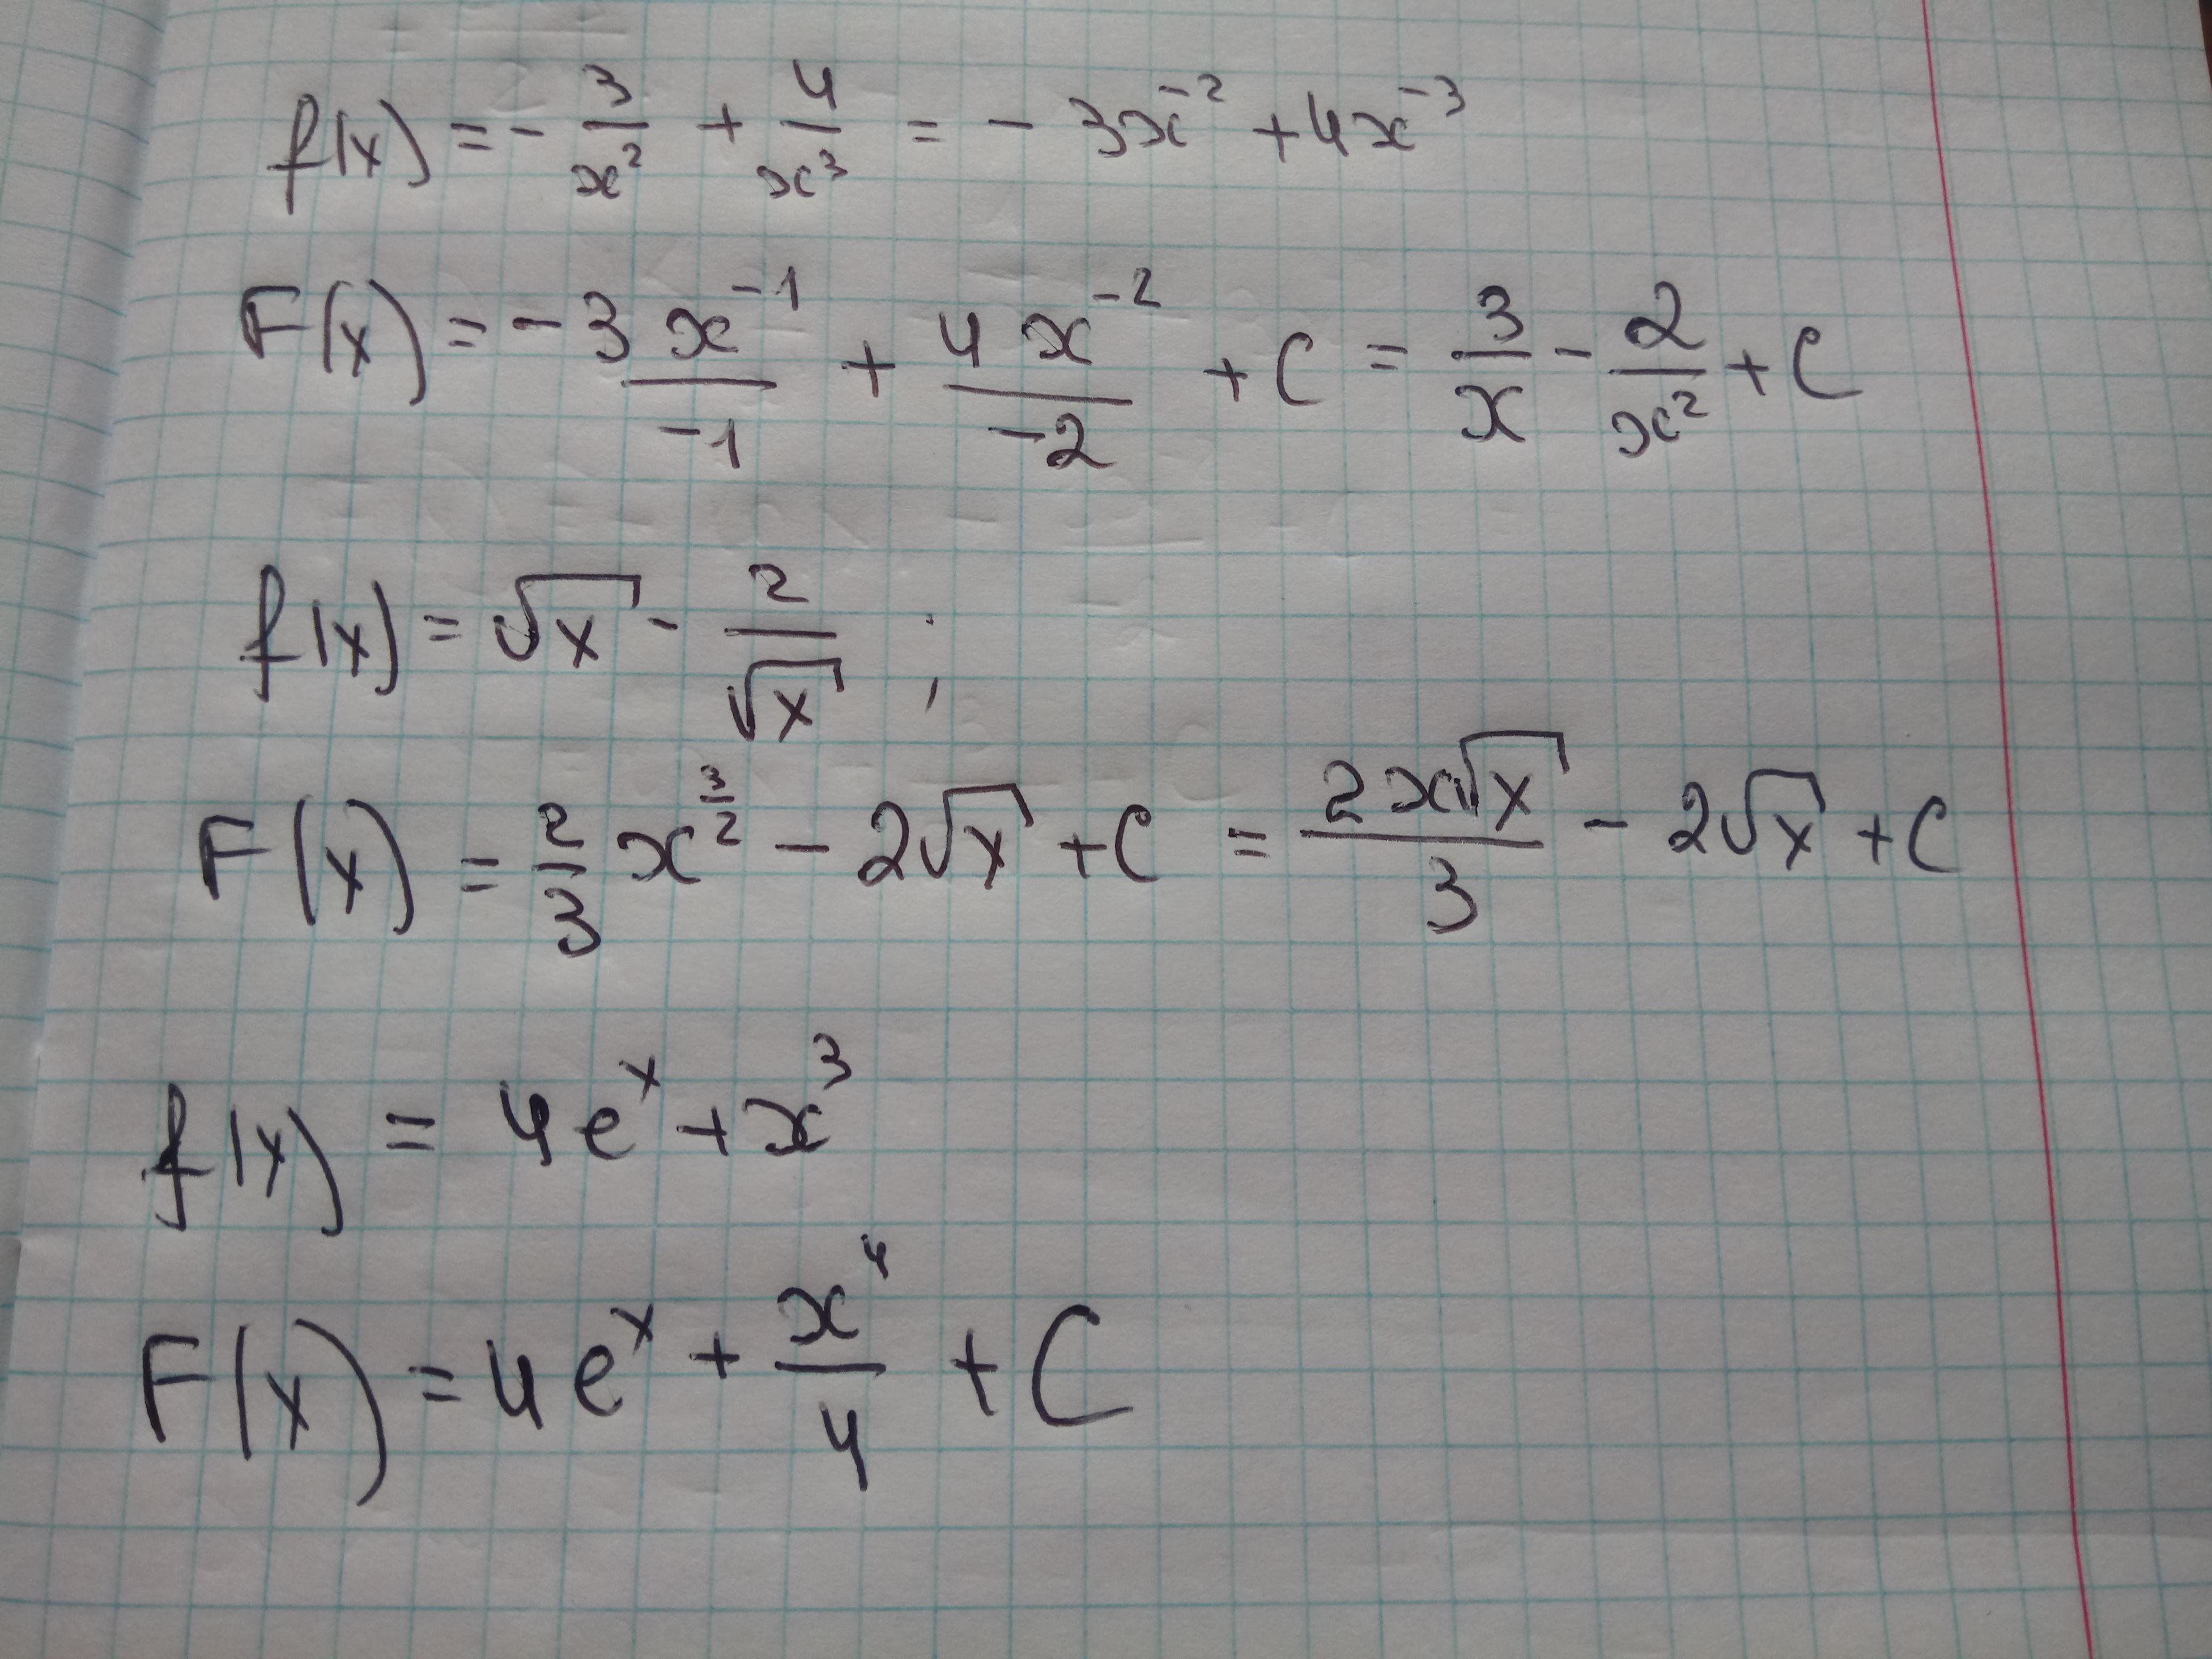 f(x) = - 3/x² + 4/x³ = - 3x⁻² + 4x⁻³
F(x) = - 3x⁻¹/-1 + 4x⁻²/-2 + C = 3/x - 2/x² + C
f(x) = √x - 2/√x ;
F(x) = 2/3 x^(3/2) - 2√x + C = 2x√x/3 - 2√x + C
f(x) = 4eˣ + x³
F(x) = 4eˣ + x⁴/4 + C